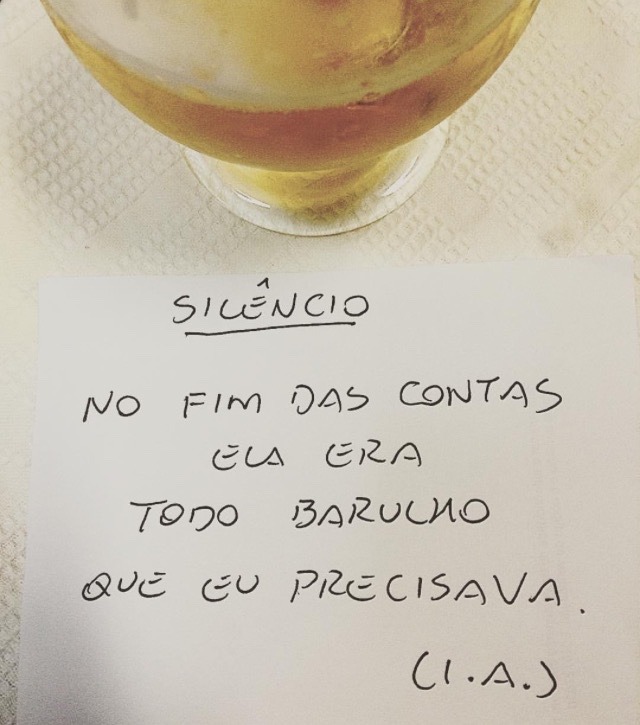 SILÊNCIO
NO FIM DAS CONTAS
ELA ERA
TODO BARULHO
QUE EU PRECISAVA.
(I.A.)